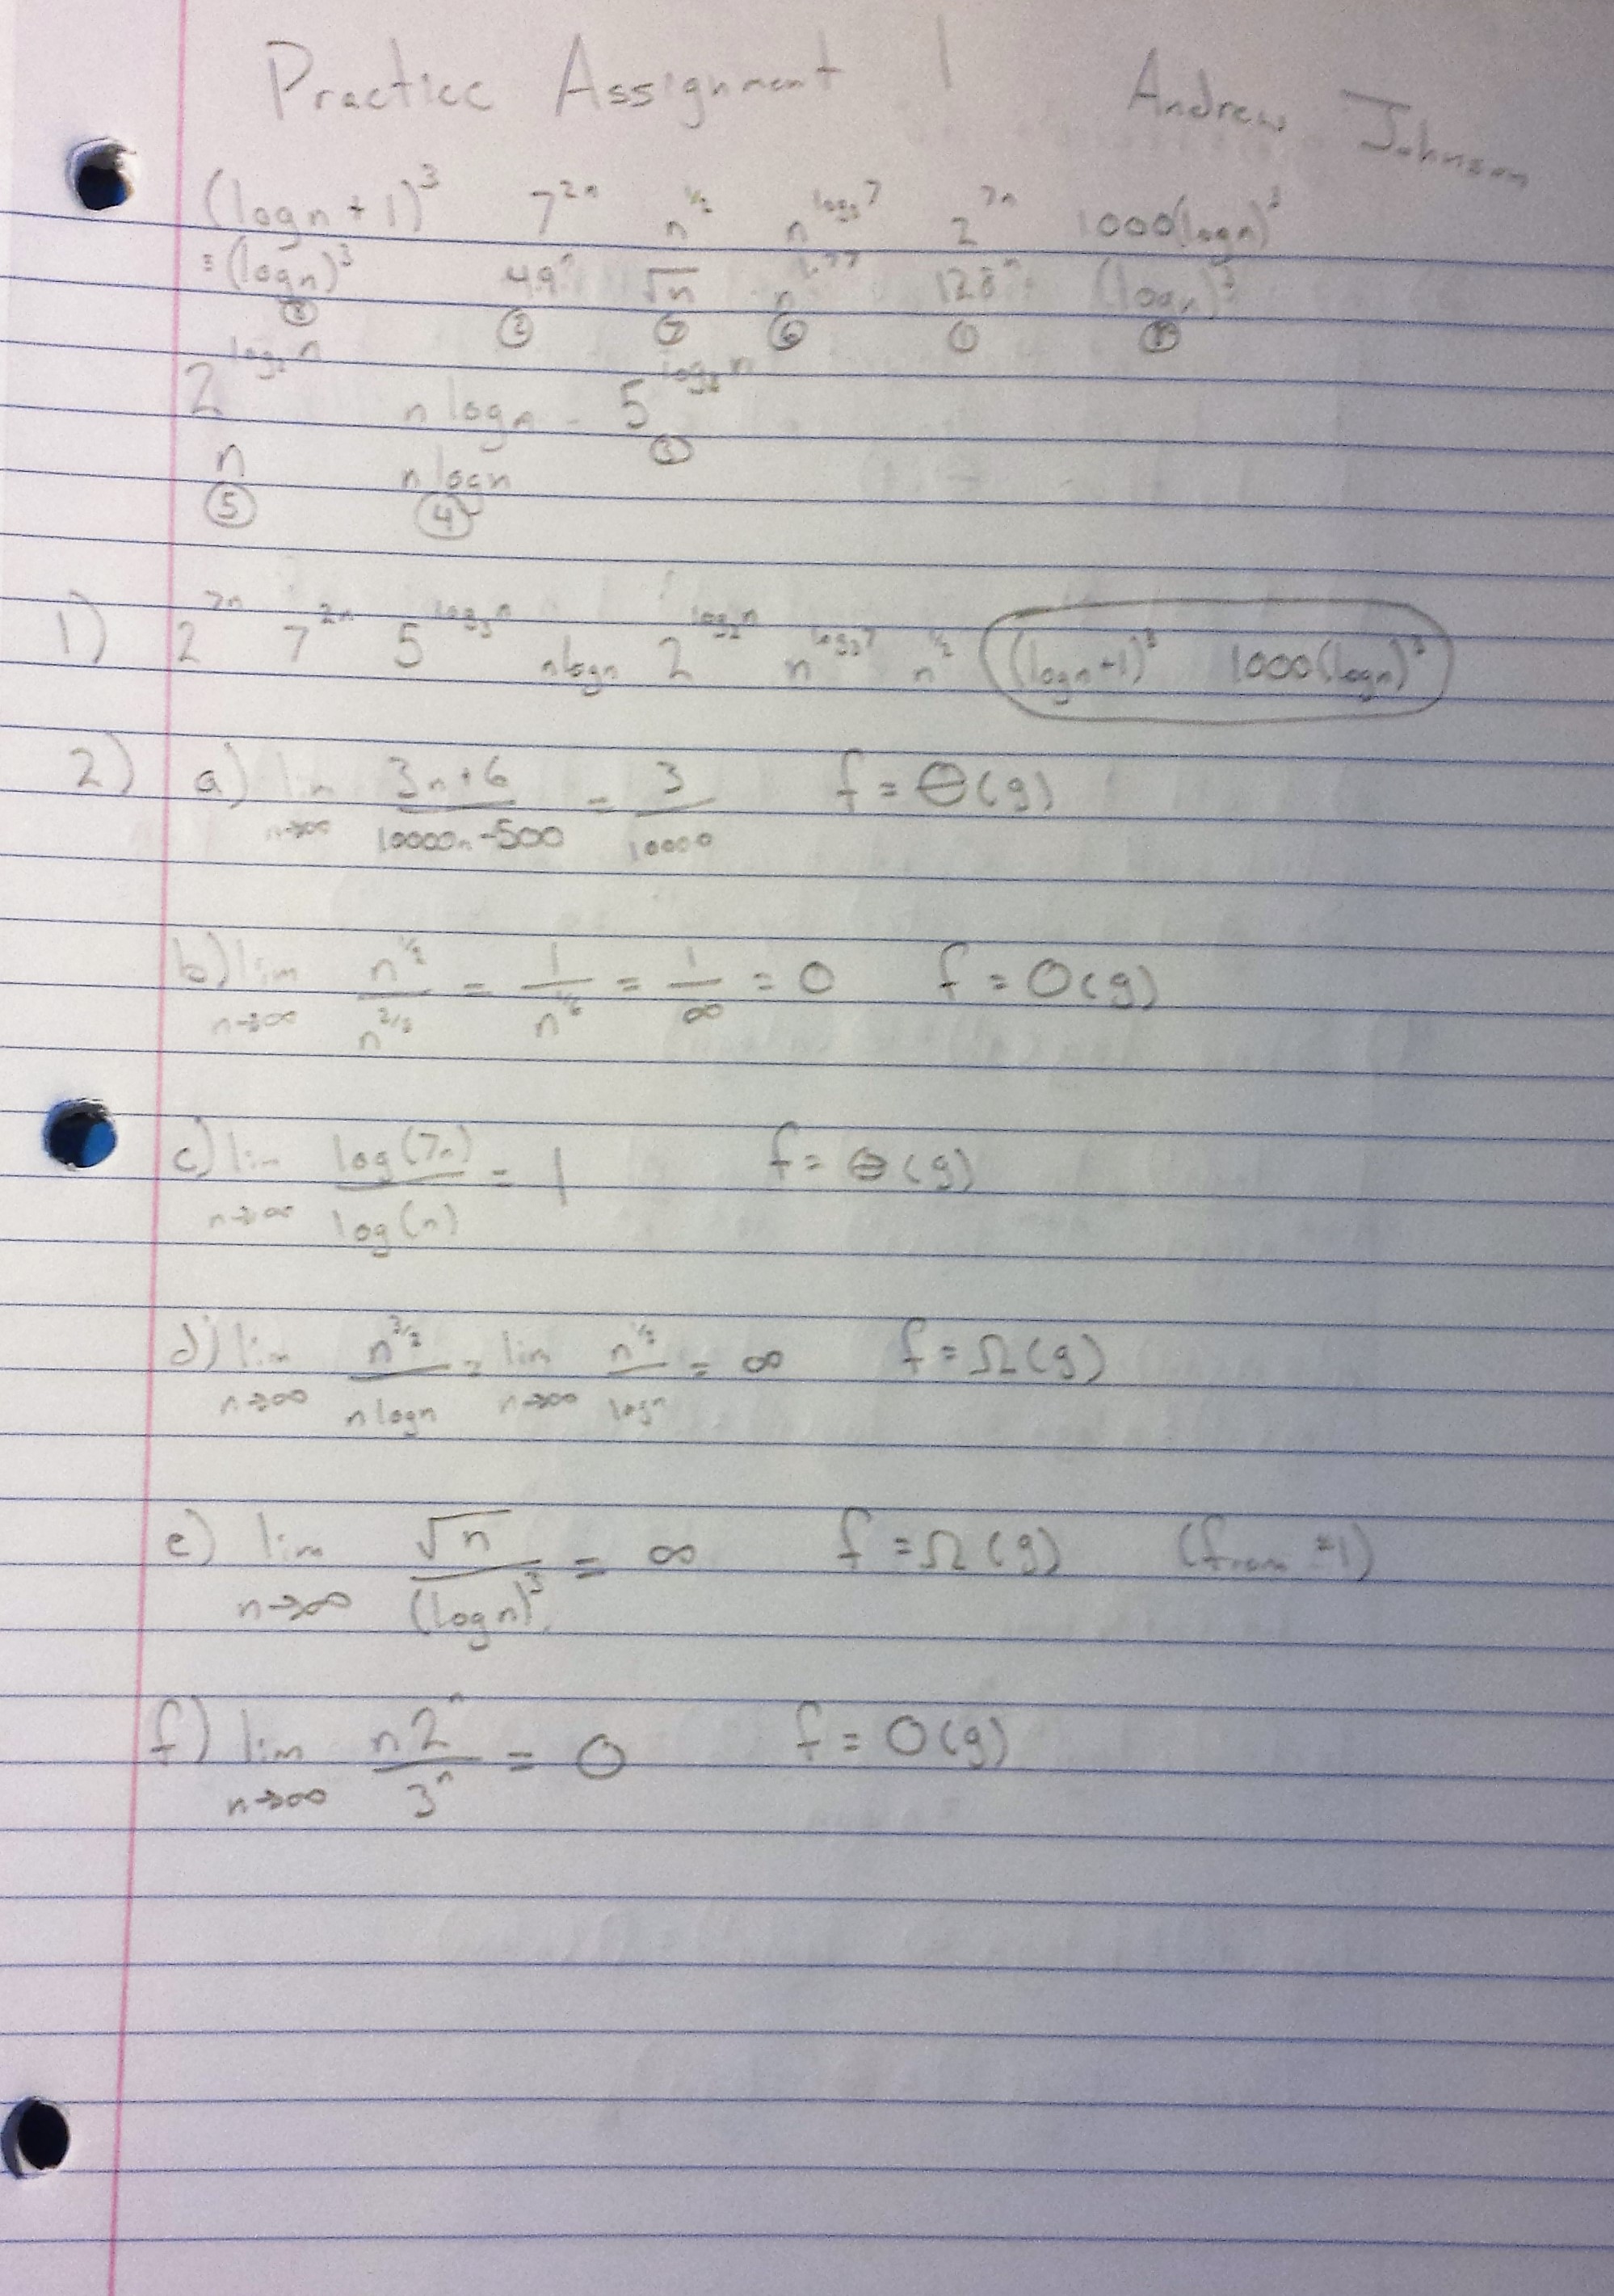 Practice Assignment 1 Andrew Johnson
(logn + 1)^3 7^{2n} n^{1/2} n^{log_3 7} 2^{7n} 1000(logn)^3
= (logn)^3 49^n √n n^{1.77} 128^n (logn)^3
② ⑦ ⑥ ①
2^{log_2 n} nlogn 5^{log_3 n}
③
n nlogn
⑤ ④
1) 2^{7n} 7^{2n} 5^{log_3 n} nlogn 2^{log_2 n} n^{log_3 7} n^{1/2} (logn+1)^3 1000(logn)^3
2) a) lim n→∞ (3n+6)/(10000n-500) = 3/10000 f = Θ(g)
b) lim n→∞ n^{1/2}/n^{2/3} = 1/n^{1/6} = 1/∞ = 0 f = O(g)
c) lim n→∞ log(7n)/log(n) = 1 f = Θ(g)
d) lim n→∞ n^{3/2}/(nlogn) = lim n→∞ n^{1/2}/logn = ∞ f = Ω(g)
e) lim n→∞ √n/(logn)^3 = ∞ f = Ω(g) (from #1)
f) lim n→∞ n2^n/3^n = 0 f = O(g)